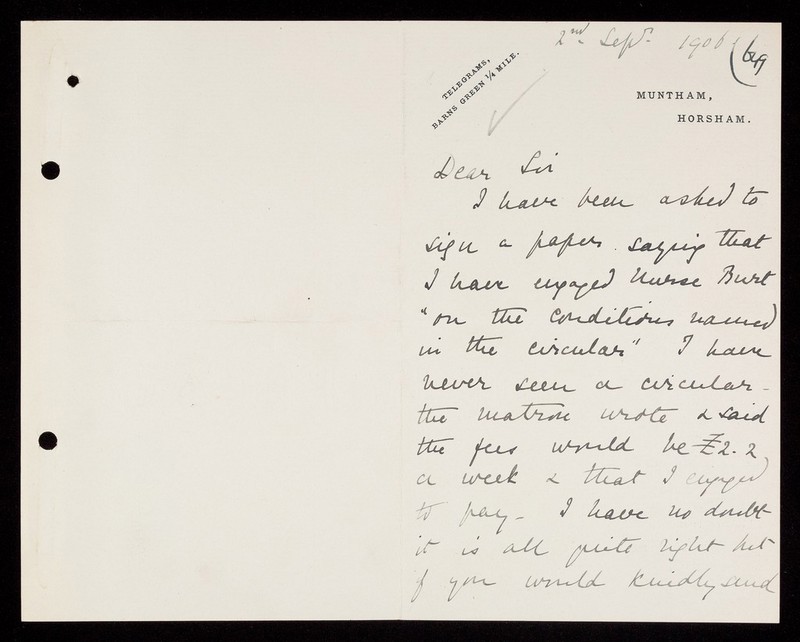 2nd. Sept. 1906
649
TELEGRAMS,
BARNS GREEN 1/4 MILE.
MUNTHAM,
HORSHAM.
Dear Sir
I have been asked to
sign a paper saying that
I have engaged Nurse Burt
"on the conditions named
in the circular" I have
never seen a circular -
the matron wrote & said
the fees would be £2.2
a week & that I engaged
to pay - I have no doubt
it is all quite right but
if you would kindly send